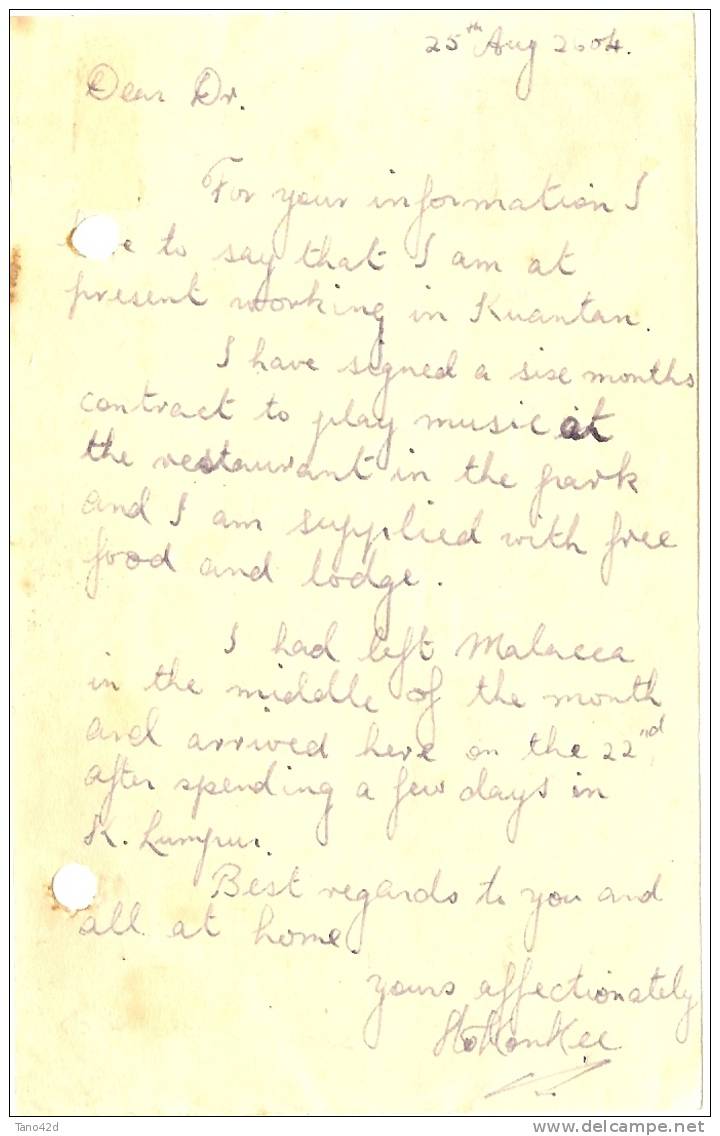 25th Aug 2604.
Dear Dr.
For your information I
to say that I am at
present working in Kuantan.
I have signed a sise months
contract to play music at
the restaurant in the park
and I am supplied with free
food and lodge.
I had left Malacca
in the middle of the month
and arrived here on the 22nd,
after spending a few days in
K. Lumpur.
Best regards to you and
all at home
yours affectionately
Tano42d
www.delcampe.net